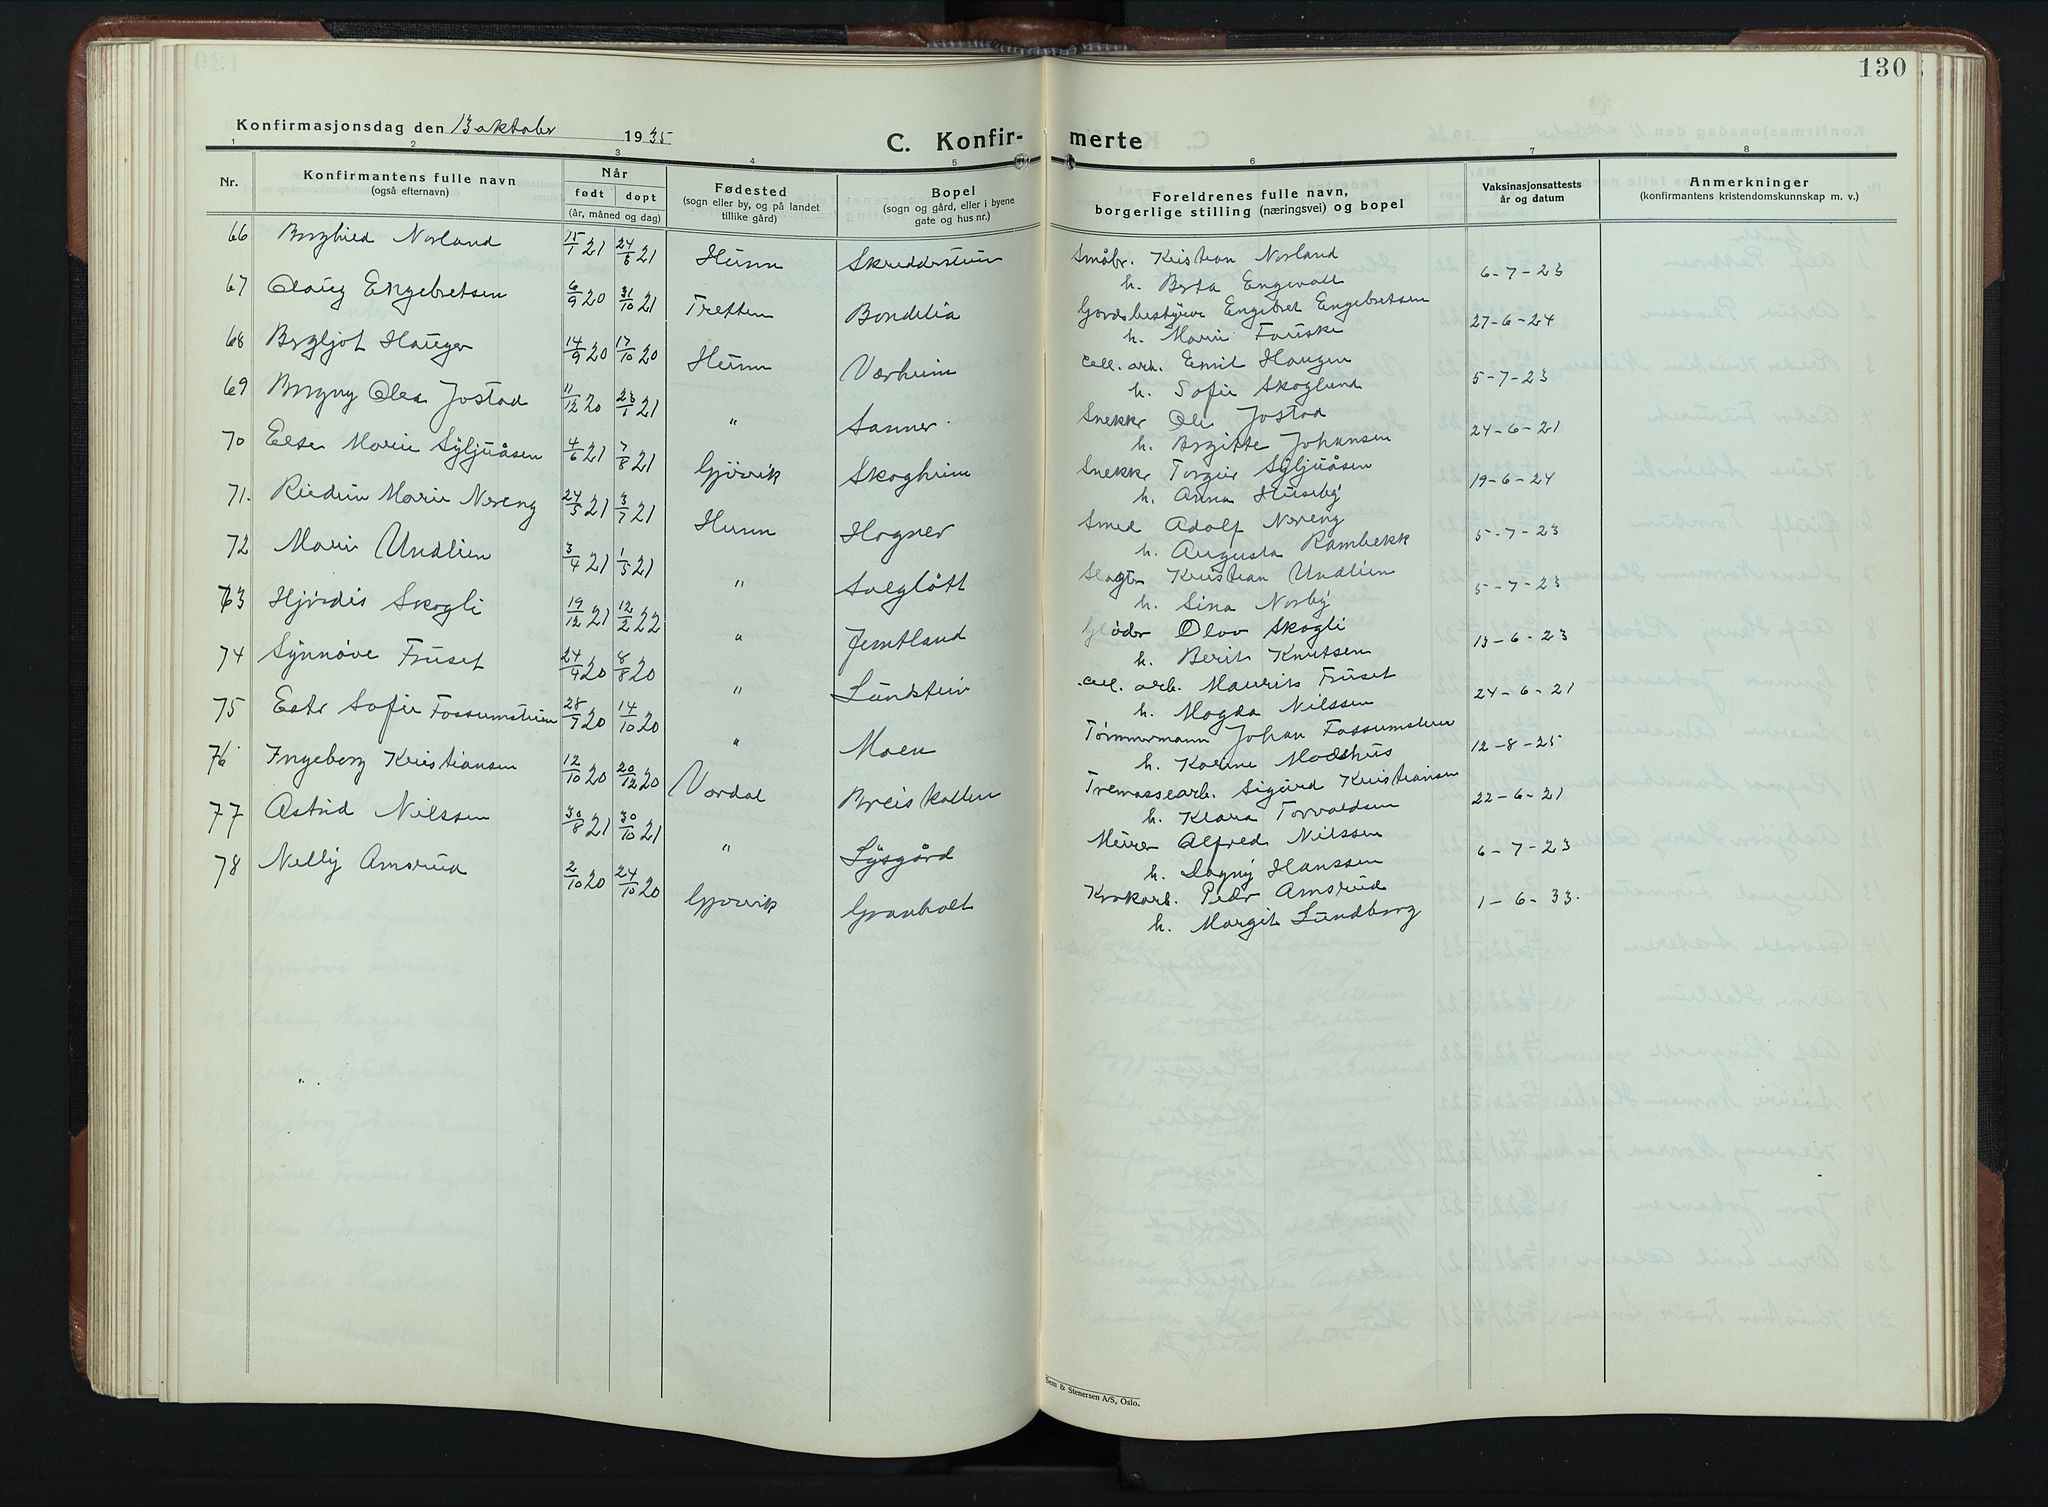 130
Konfirmasjonsdag den 13 oktober 1935
C. Konfir- merte
1 2 3 4 5 6 7 8
Nr.
Konfirmantens fulle navn
(også efternavn)
Når
født døpt
(år, måned og dag)
Fødested
(sogn eller by, og på landet
tillike gård)
Bopel
(sogn og gård, eller i byene
gate og hus nr.)
Foreldrenes fulle navn,
borgerlige stilling (næringsvei) og bopel
Vaksinasjonsattests
år og datum
Anmerkninger
(konfirmantens kristendomskunnskap m. v.)
66 Borghild Norland 15/1 21 24/6 21 Hunn Skredderstuen Småbr. Kristian Norland
h. Berta Engevall 6-7-23
67 Olaug Engebretsen 6/9 20 31/10 21 Tretten Bondelia Gårdsbestyrer Engebret Engebretsen
h. Marie Fauske 27-6-24
68 Bergljot Haugen 14/9 20 17/10 20 Hunn Værheim cell. arb. Emil Haugen
h. Sofie Skoglund 5-7-23
69 Borgny Olea Jostad 11/12 20 23/1 21 " Sanner Snekker Ole Jostad
h. Birgitte Johansen 24-6-21
70 Else Marie Syljuåsen 4/6 21 7/8 21 Gjøvik Skogheim Snekker Torgeir Syljuåsen
h. Anna Huseby 19-6-24
71. Reidun Marie Nereng 24/5 21 3/7 21 Hunn Hagner Smed Adolf Nereng
h. Augusta Rambekk 5-7-23
72 Mari Undlien 3/4 21 1/5 21 " Solgløtt Slagter Kristian Undlien
h. Sina Norby 5-7-23
73 Hjørdis Skogli 19/12 21 12/2 22 " Jemtland Gløder Olav Skogli
h. Berit Knutsen 13-6-23
74 Synnøve Fruset 24/4 20 8/8 20 " Lundstein cell. arb. Maurits Fruset
h. Magda Nilssen 24-6-21
75 Ester Sofie Fossumstuen 28/9 20 14/10 20 " Moen Tømmermann Johan Fossumstuen
h. Karine Madshus 12-8-25
76. Ingeborg Kristiansen 12/10 20 20/12 20 Vardal Breiskallen Tremassearb. Sigurd Kristiansen
h. Klara Torvaldsen 22-6-21
77 Astrid Nilssen 30/8 21 30/10 21 " Lysgård Meier Alfred Nilssen
h. Dagny Hanssen 6-7-23
78 Nelly Amsrud 2/10 20 24/10 20 Gjøvik Granholt Krokarb. Peder Amsrud
h. Margit Lundborg 1-6-33.
Sem & Stenersen A/S, Oslo.